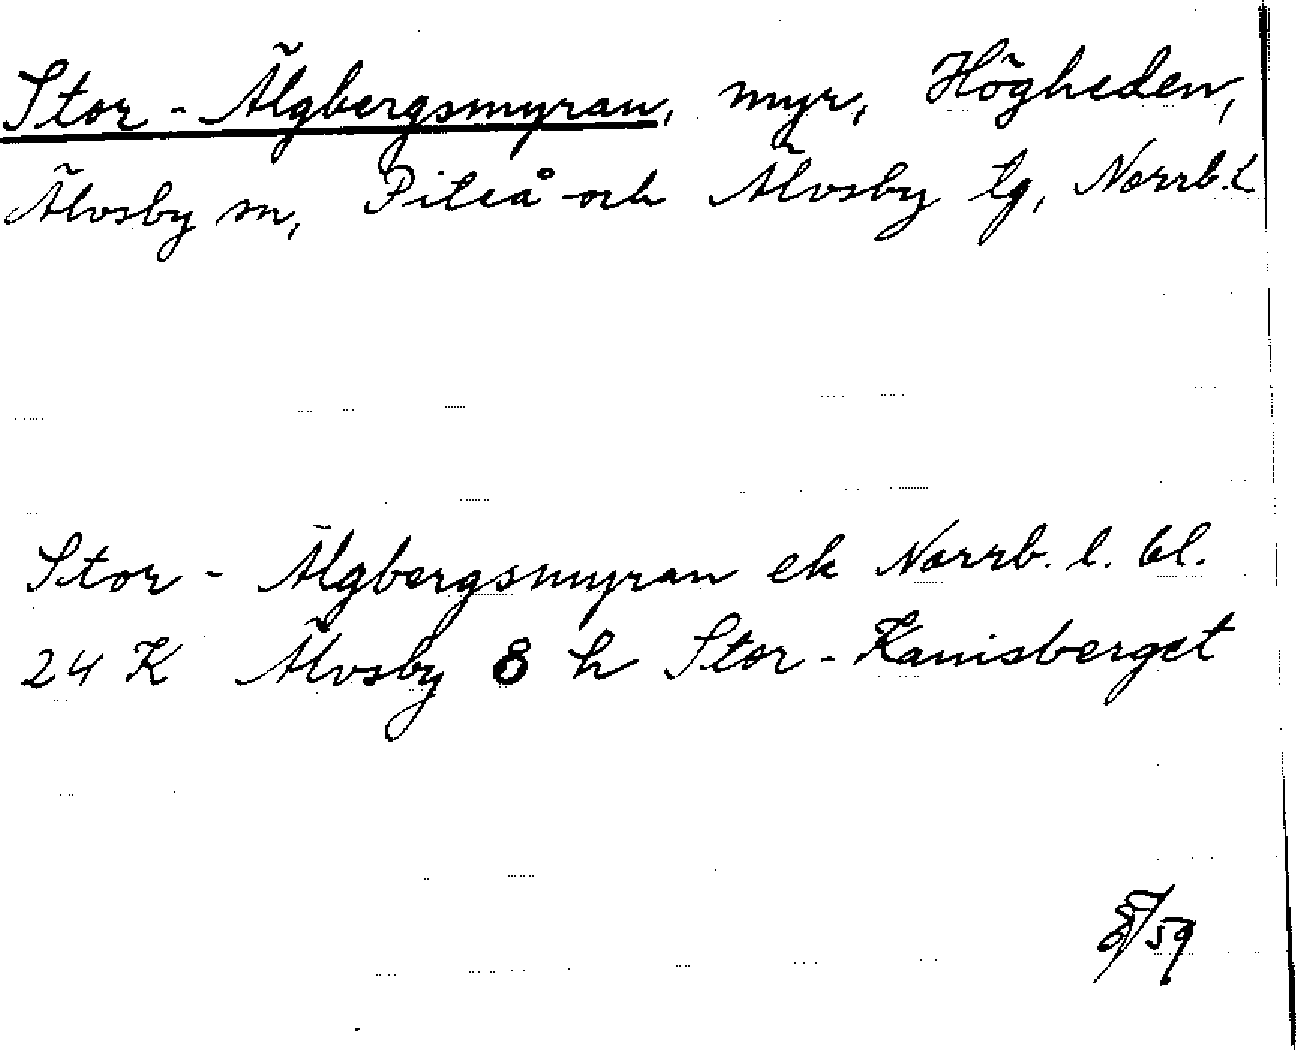 Stor-Älgbergsmyran, myr, Högheden,
Älvsby sn, Piteå och Älvsby tg, Norrb.l
Stor-Älgbergsmyran ek Norrb. l. bl.
24 K Älvsby 8 h Stor-Kanisberget
/59